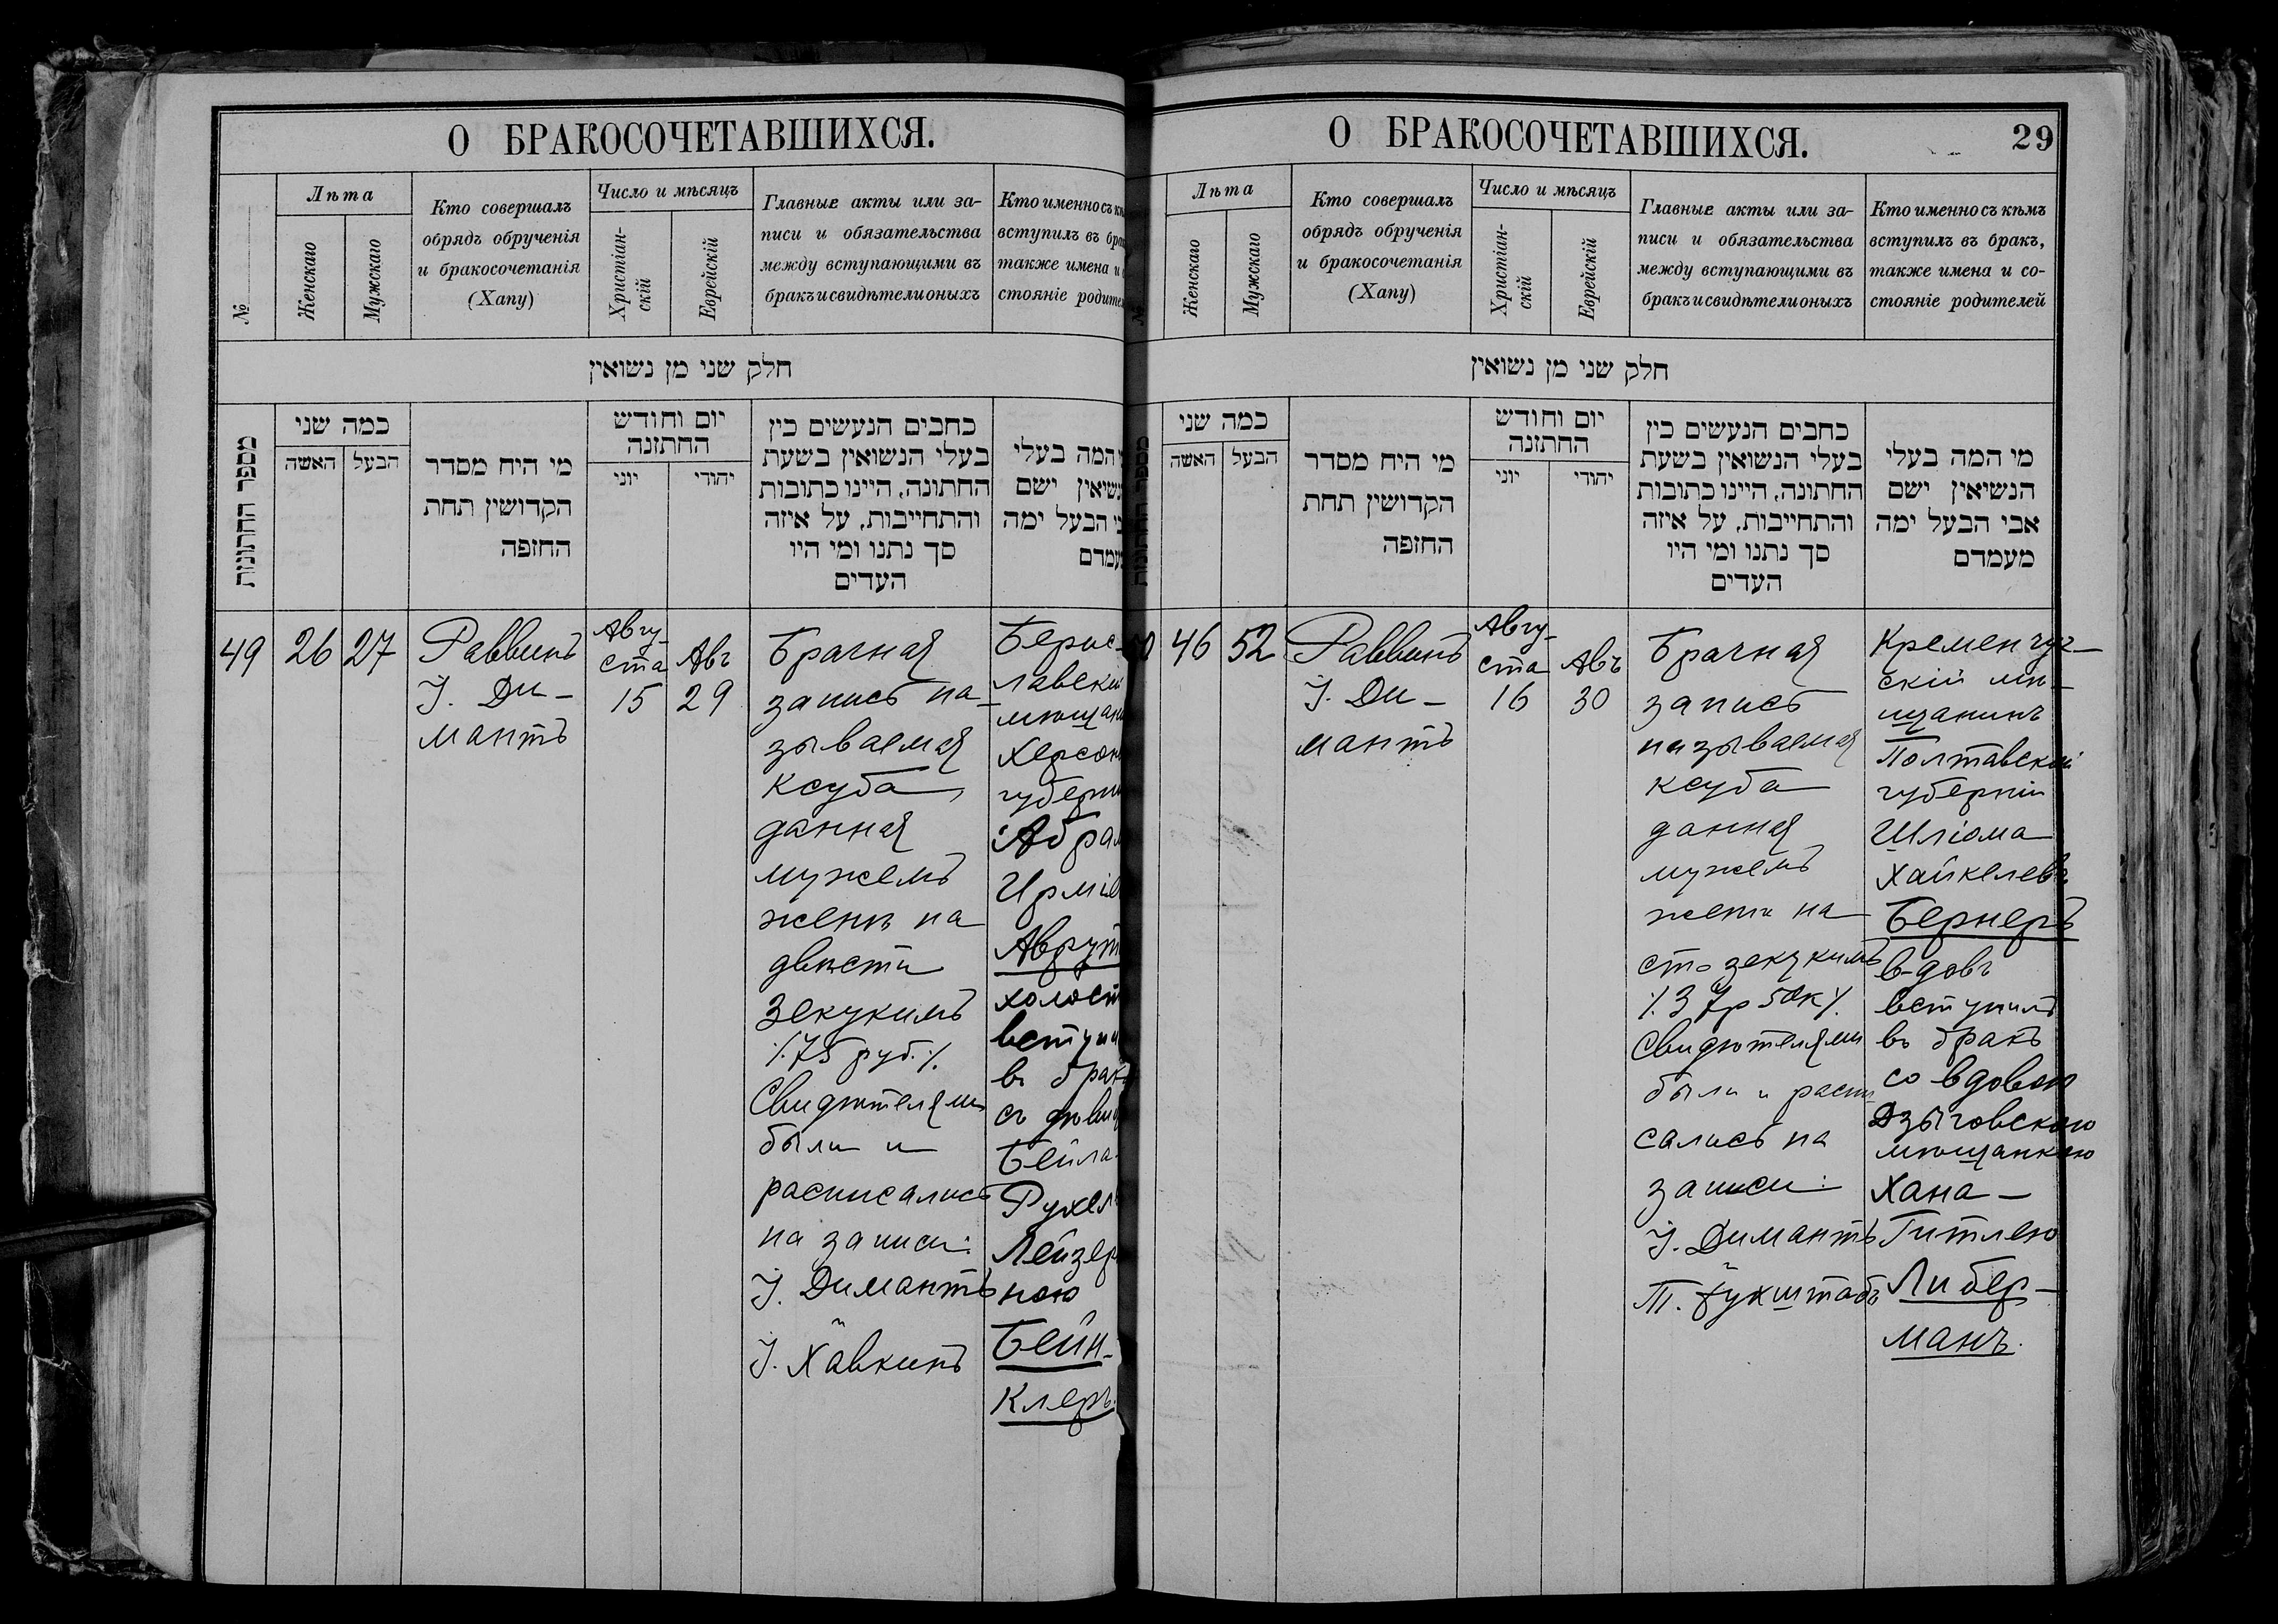 О БРАКОСОЧЕТАВШИХСЯ.
№
Лѣта
Женскаго
Мужскаго
Кто совершалъ
обрядъ обрученія
и бракосочетанія
(Хапу)
Число и мѣсяцъ
Христіан-
скій
Еврейскій
Главные акты или за-
писи и обязательства
между вступающими въ
бракъ и свидѣтели оныхъ
Кто именно съ
вступилъ въ
также имена и
стояніе
חלק שני מן נשואין
מספר החתונות
כמה שני
האשה
הבעל
מי היח מסדר
הקדושין תחת
החופה
יום וחודש
החתזנה
יוני
יהודי
כחבים הנעשים כין
בעלי הנשואין בשעת
החתונה, היינו כתובות
והתחייבות, על איזה
סך נתנו ומי היו
העדים
המה בעלי
ישם
הבעל ימה
49
26
27
Раввинъ
І. Ди-
мантъ
Авгу-
ста
15
Авъ
29
Брачная
запись на-
зываемая
ксуба,
данная
мужемъ
женѣ на
двѣсти
зекукимъ
/.75 руб./.
Свидѣтелями
были и
расписались
на записи:
І. Димантъ
І. Хавкинъ
Берис-
лавскій
мѣщан
Херсон
губерн
Абрам
Ирміе
Аврут
холост
вступи
въ брак
съ дѣви
Бейла-
Рухел
Лейзер
ною
Бейн-
клеръ.
О БРАКОСОЧЕТАВШИХСЯ.
29
Лѣта
Женскаго
Мужскаго
Кто совершалъ
обрядъ обрученія
и бракосочетанія
(Хапу)
Число и мѣсяцъ
Христіан-
скій
Еврейскій
Главные акты или за-
писи и обязательства
между вступающими въ
бракъ и свидѣтели оныхъ
Кто именно съ кѣмъ
вступилъ въ бракъ,
также имена и со-
стояніе родителей
חלק שני מן נשואין
כמה שני
האשה
הבעל
מי היח מסדר
הקדושין תחת
החופה
יום וחודש
החתזנה
יוני
יהודי
כחבים הנעשים כין
בעלי הנשואין בשעת
החתונה, היינו כתובות
והתחייבות, על איזה
סך נתנו ומי היו
העדים
מי המה בעלי
הנשיאין ישם
אבי הבעל ימה
מעמדם
46
52
Раввинъ
І. Ди-
мантъ
Авгу-
ста
16
Авъ
30
Брачная
запись
называемая
ксуба
данная
мужемъ
женѣ на
сто зекукимъ
/.37р 50к/.
Свидѣтелями
были и распи
сались на
записи:
І. Димантъ
Кременчуг-
скій мѣ-
щанинъ
Полтавской
губерніи
Шліома
Хайкелевъ
Бернеръ
вдовъ
вступилъ
въ бракъ
со вдовою
Дзыговскою
мѣщанкою
Хана-
Гитлею
Либер-
манъ.